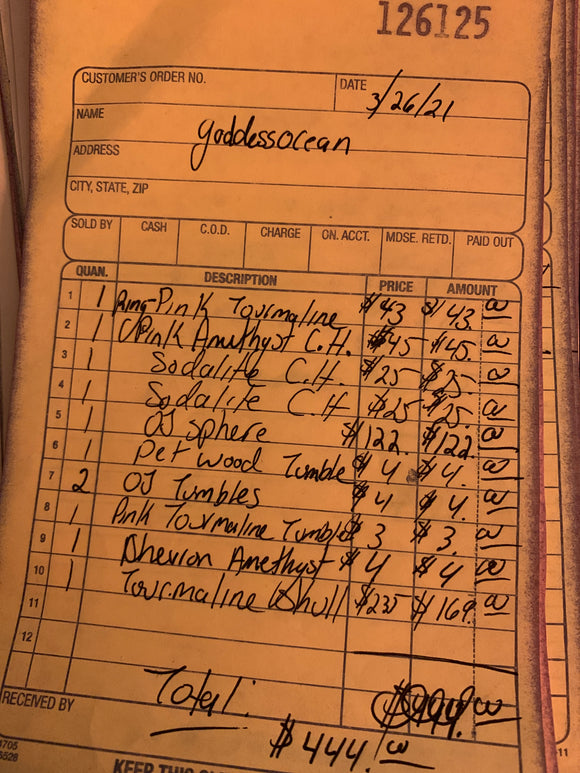 126125
CUSTOMER'S ORDER NO. DATE 3/26/21
NAME goddessocean
ADDRESS
CITY, STATE, ZIP
SOLD BY CASH C.O.D. CHARGE ON. ACCT. MDSE. RETD. PAID OUT
QUAN. DESCRIPTION PRICE AMOUNT
1 1 Ring-Pink Tourmaline $43 $43.00
2 1 Pink Amethyst C.H. $45 $45.00
3 1 Sodalite C.H. $25 $25.00
4 1 Sodalite C.H $25 $25.00
5 1 OJ Sphere $122. $122.00
6 1 Pet Wood Tumble $4 $4.00
7 2 OJ Tumbles $4 $4.00
8 1 Pink Tourmaline Tumble $3 $3.00
9 1 Shevron Amethyst $4 $4.00
10 1 Tourmaline Skull $235 $169.00
11
12
Total:
RECEIVED BY $444.00
KEEP THIS